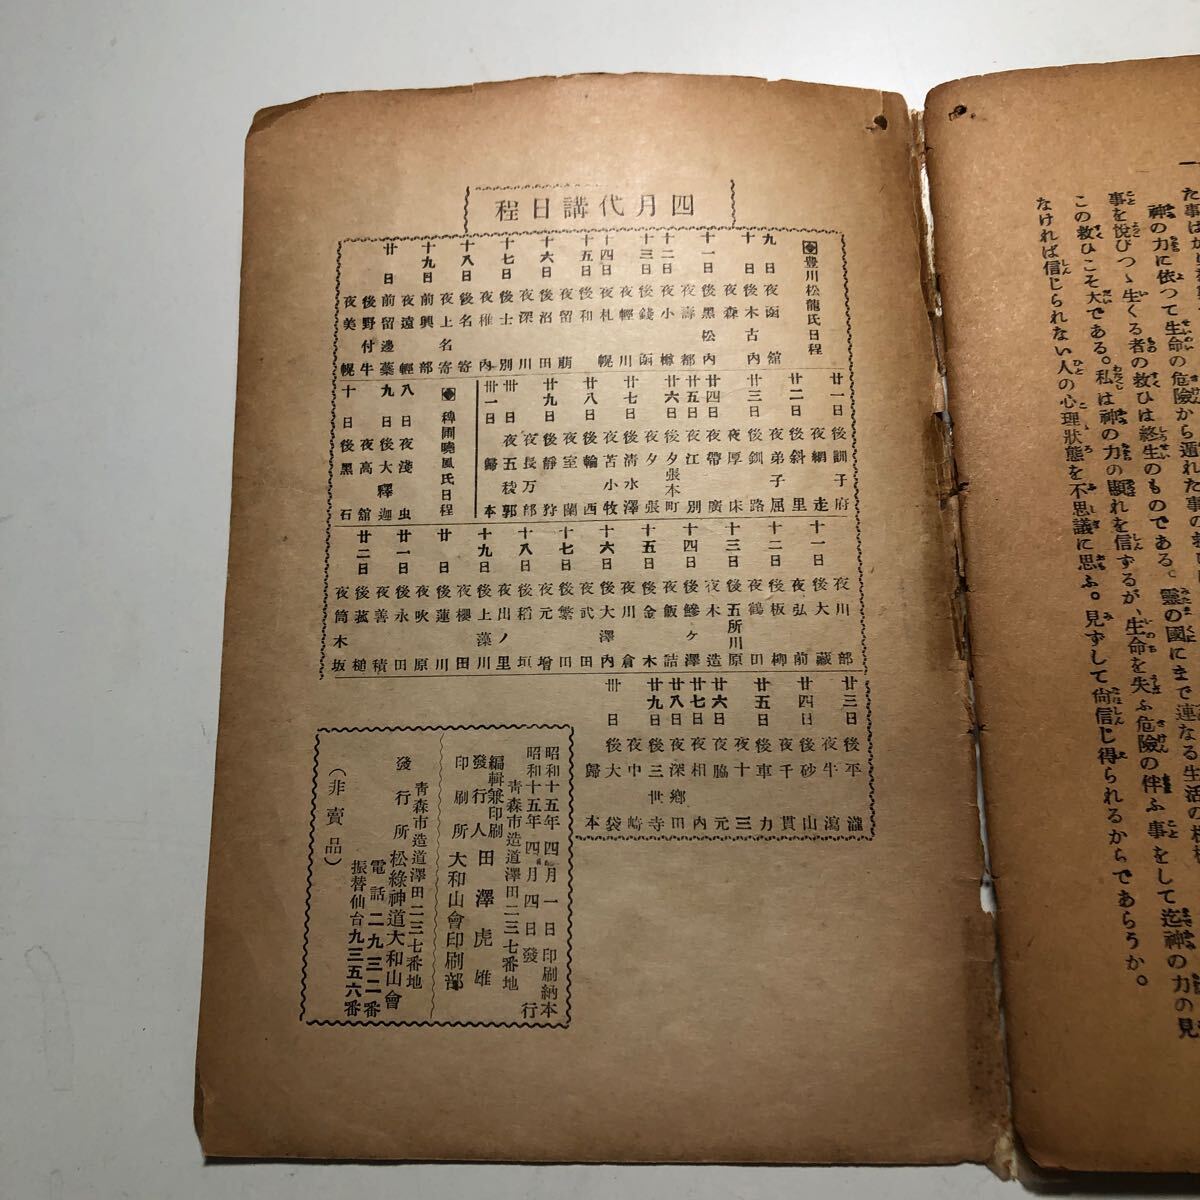 一
神の力に依つて生命の危險から遁れた事の
事を悅びつゝ生くる者の救ひは終生のものである。靈の國にまで連なる生活の
この救ひこそ大である。私は神の力の顯れを信ずるが、生命を失ふ危險の伴ふ事をして迄神の力の見
なければ信じられない人の心理狀態を不思議に思ふ。見ずして尙信じ得られるからであらうか。
四月代講日程
豊川松龍氏日程
九日 夜 函館
十日 後 木古內
夜 森
十一日 後 黑松內
夜 壽都
十二日 夜 小樽
十三日 後 錢函
夜 輕川
十四日 夜 札幌
十五日 後 和
夜 留萠
十六日 後 沼田
夜 深川
十七日 後 士別
夜 稚內
十八日 後 名寄
夜 上名寄
十九日 前 興部
夜 遠輕
廿日 前 留邊蘂
後 野付牛
夜 美幌
廿一日 後 訓子府
夜 網走
廿二日 後 斜里
夜 弟子屈
廿三日 後 釧路
夜 厚床
廿四日 夜 帶廣
廿五日 夜 江別
廿六日 後 夕張本町
夜 夕張
廿七日 後 淸水澤
夜 苫小牧
廿八日 後 輪西
夜 室蘭
廿九日 後 靜狩
夜 長万部
卅日 夜 五稜郭
卅一日 歸本
稗圃曉風氏日程
八日 夜 淺虫
九日 後 大釋迦
夜 高舘
十日 後 黑石
夜 川部
十一日 後 大藏
夜 弘前
十二日 後 板柳
夜 鶴田
十三日 後 五所川原
夜 木造
十四日 後 鰺ヶ澤
夜 飯詰
十五日 後 金木
夜 川倉
十六日 後 大澤內
夜 武田
十七日 後 繁田
夜 元增
十八日 後 稻垣
夜 出ノ里
十九日 後 上藻川
夜 櫻田
廿日 後 蓮川
夜 吹原
廿一日 後 永田
夜 善積
廿二日 後 菰槌
夜 筒木坂
廿三日 後 平瀧
夜 牛潟
廿四日 後 砂山
夜 千貫
廿五日 後 車力
夜 十三
廿六日 夜 脇元
廿七日 後 相內
廿八日 夜 深鄉田
廿九日 後 三世寺
夜 中崎
卅日 後 大袋
歸本
昭和十五年四月一日印刷納本
昭和十五年四月四日發行
靑森市造道澤田二三七番地
編輯兼印刷
發行人 田澤虎雄
印刷所 大和山會印刷部
靑森市造道澤田二三七番地
發行所 松綠神道大和山會
電話二九三二番
振替仙台九三五六番
（非賣品）